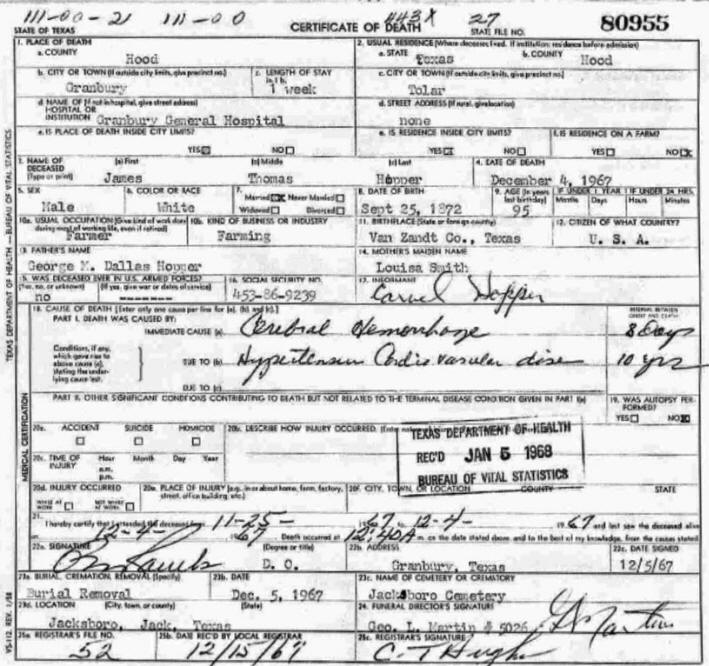 111-00-21 111-00 443X 27
STATE OF TEXAS CERTIFICATE OF DEATH STATE FILE NO. 80955
1. PLACE OF DEATH 2. USUAL RESIDENCE (Where deceased lived. If institution: residence before admission)
a. COUNTY Hood a. STATE Texas b. COUNTY Hood
b. CITY OR TOWN (If outside city limits, give precinct no.) Granbury c. LENGTH OF STAY in 1 b. 1 week c. CITY OR TOWN (If outside city limits, give precinct no.) Tolar
d. NAME OF (If not in hospital, give street address) HOSPITAL OR INSTITUTION Granbury General Hospital d. STREET ADDRESS (If rural, give location) none
e. IS PLACE OF DEATH INSIDE CITY LIMITS? YES☒ NO☐ e. IS RESIDENCE INSIDE CITY LIMITS? YES☒ NO☐ f. IS RESIDENCE ON A FARM? YES☐ NO☒
3. NAME OF DECEASED (Type or print) (a) First James (b) Middle Thomas (c) Last Hopper 4. DATE OF DEATH December 4, 1967
5. SEX Male 6. COLOR OR RACE White 7. Married☒ Never Married☐ Widowed☐ Divorced☐ 8. DATE OF BIRTH Sept 25, 1872 9. AGE (In years last birthday) 95 IF UNDER 1 YEAR Months Days IF UNDER 24 HRS. Hours Minutes
10a. USUAL OCCUPATION (Give kind of work done during most of working life, even if retired) Farmer 10b. KIND OF BUSINESS OR INDUSTRY Farming 11. BIRTHPLACE (State or foreign country) Van Zandt Co., Texas 12. CITIZEN OF WHAT COUNTRY? U. S. A.
13. FATHER'S NAME George M. Dallas Hopper 14. MOTHER'S MAIDEN NAME Louisa Smith
15. WAS DECEASED EVER IN U.S. ARMED FORCES? (Yes, no, or unknown) no (If yes, give war or dates of service) ------- 16. SOCIAL SECURITY NO. 453-86-9239 17. INFORMANT Carvel Hopper
18. CAUSE OF DEATH [Enter only one cause per line for (a), (b) and (c).] INTERVAL BETWEEN ONSET AND DEATH
PART I. DEATH WAS CAUSED BY:
IMMEDIATE CAUSE (a) Cerebral Hemorrhage 8 Days
Conditions, if any, which gave rise to above cause (a), stating the underlying cause last. DUE TO (b) 10 yrs
DUE TO (c)
PART II. OTHER SIGNIFICANT CONDITIONS CONTRIBUTING TO DEATH BUT NOT RELATED TO THE TERMINAL DISEASE CONDITION GIVEN IN PART I(a) 19. WAS AUTOPSY PERFORMED? YES☐ NO☒
20a. ACCIDENT ☐ SUICIDE ☐ HOMICIDE ☐ 20b. DESCRIBE HOW INJURY OCCURRED.
20c. TIME OF INJURY Hour a.m. p.m. Month Day Year
TEXAS DEPARTMENT OF HEALTH
REC'D JAN 5 1968
BUREAU OF VITAL STATISTICS
20d. INJURY OCCURRED WHILE AT WORK ☐ NOT WHILE AT WORK ☐ 20e. PLACE OF INJURY (e.g., in or about home, farm, factory, street, office building, etc.) 20f. CITY, TOWN, OR LOCATION COUNTY STATE
21. I hereby certify that I attended the deceased from 11-25- 1967 to 12-4- 1967 and last saw the deceased alive
on 12-4- 1967. Death occurred at 12:40A m. on the date stated above, and to the best of my knowledge, from the causes stated.
22a. SIGNATURE (Degree or title) D. O. 22b. ADDRESS Granbury, Texas 22c. DATE SIGNED 12/5/67
23a. BURIAL, CREMATION, REMOVAL (Specify) Burial Removal 23b. DATE Dec. 5, 1967 23c. NAME OF CEMETERY OR CREMATORY Jacksboro Cemetery
23d. LOCATION (City, town, or county) (State) Jacksboro, Jack, Texas 24. FUNERAL DIRECTOR'S SIGNATURE Geo. L. Martin # 5026 G L Martin
25a. REGISTRAR'S FILE NO. 52 25b. DATE REC'D BY LOCAL REGISTRAR 12/15/67 25c. REGISTRAR'S SIGNATURE C. T. Hugh
TEXAS DEPARTMENT OF HEALTH — BUREAU OF VITAL STATISTICS
MEDICAL CERTIFICATION
VS-112, REV. 1/58